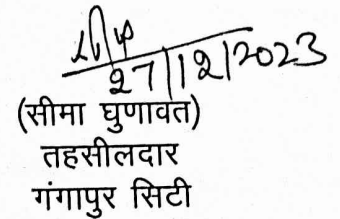 27/12/2023
(सीमा घुणावत)
तहसीलदार
गंगापुर सिटी